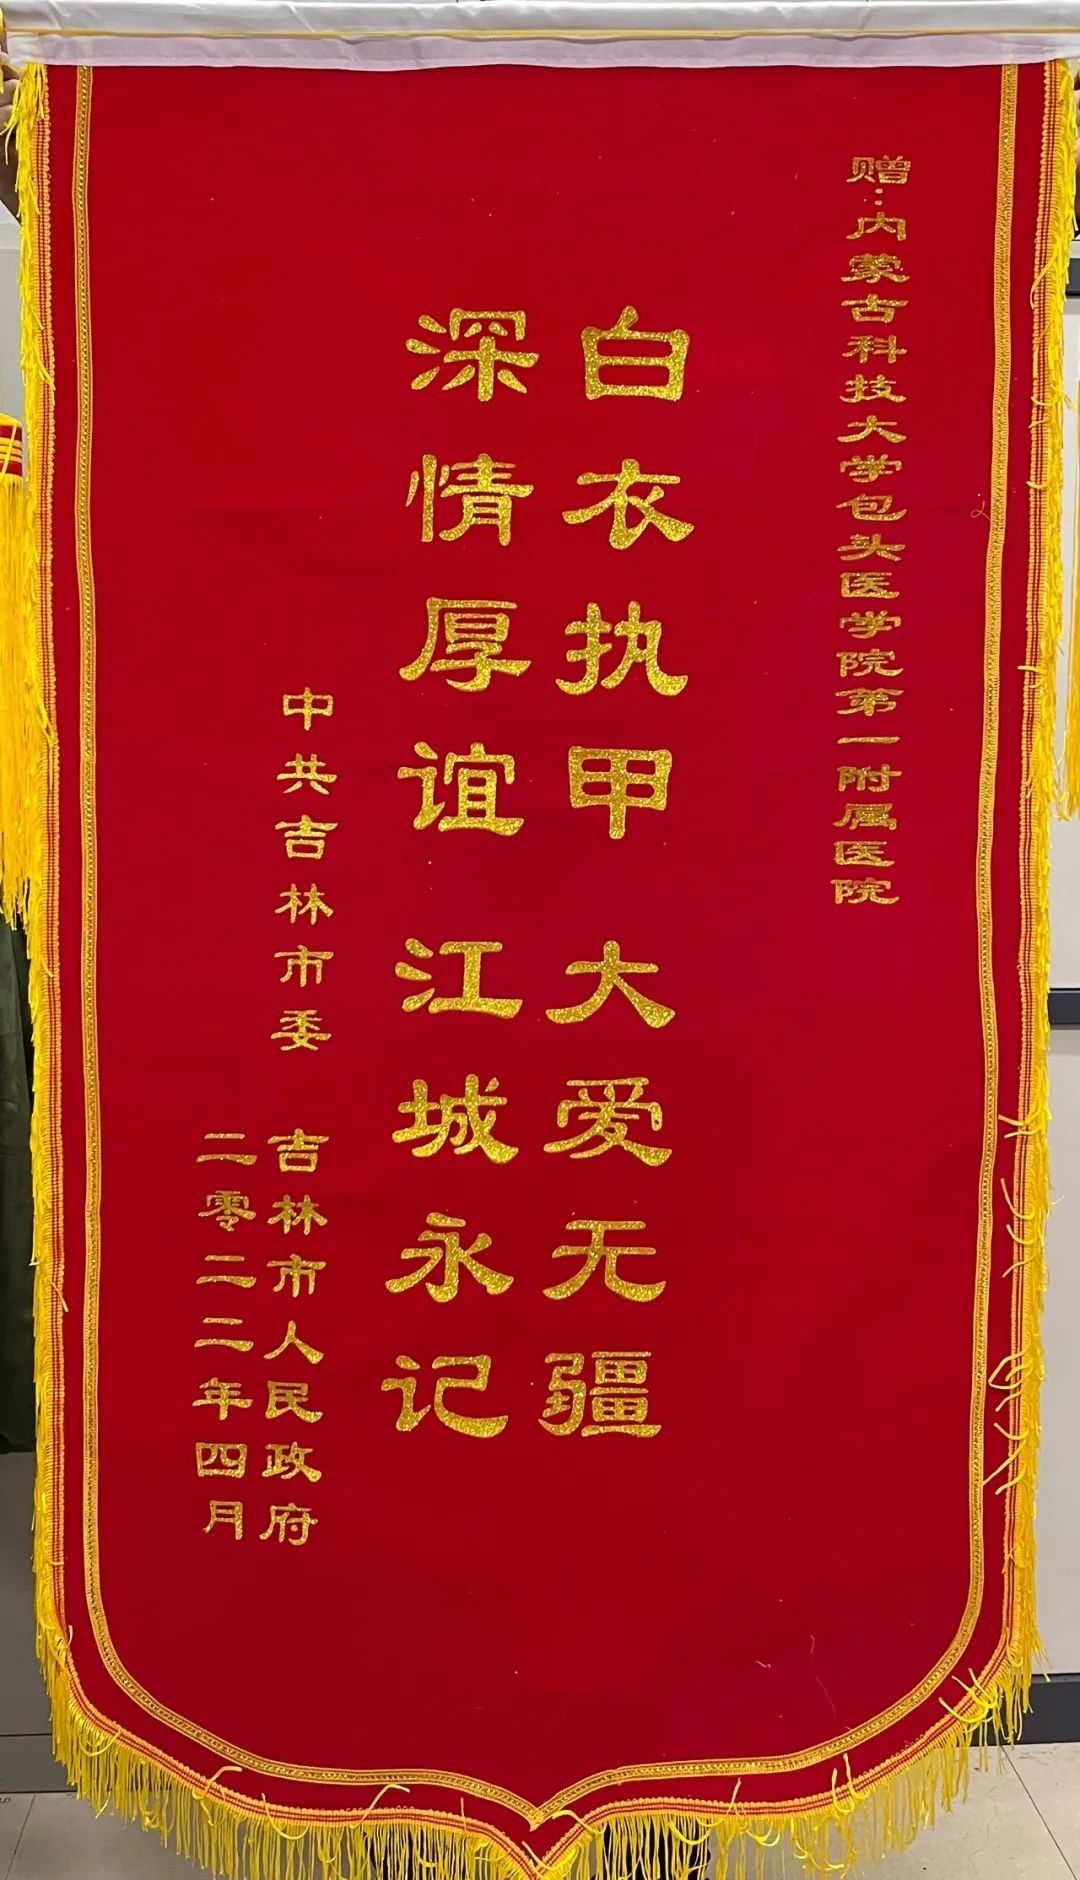 赠:内蒙古科技大学包头医学院第一附属医院
白衣执甲 大爱无疆
深情厚谊 江城永记
中共吉林市委 吉林市人民政府
二零二二年四月